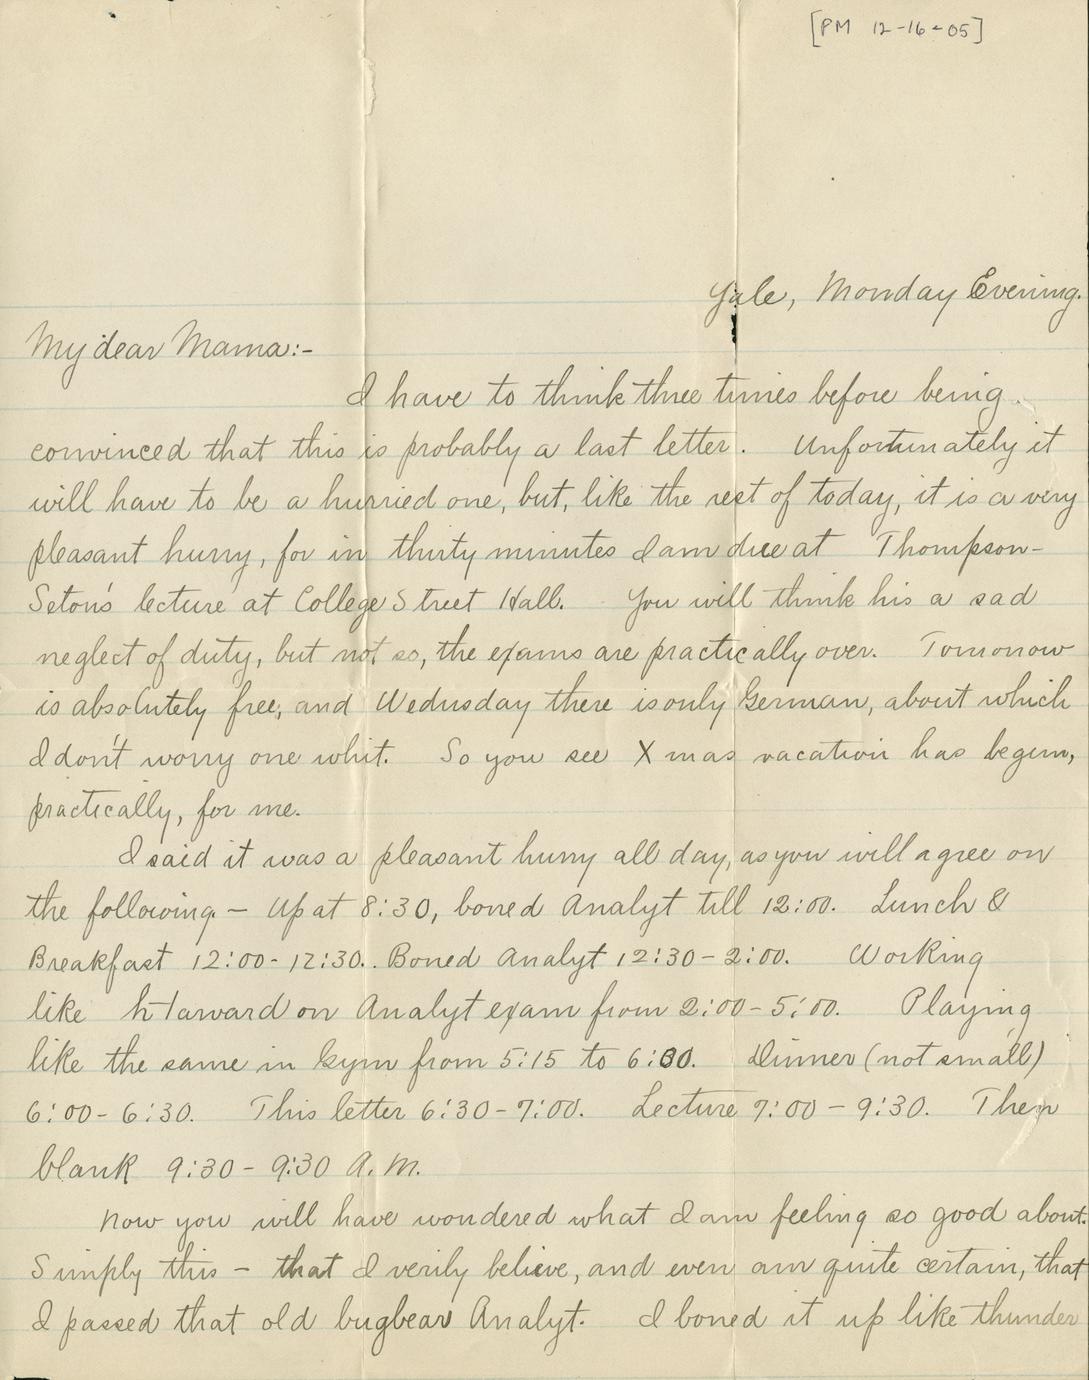 [PM 12-16-05]
Yale, Monday Evening.
My dear Mama:-
I have to think three times before being
convinced that this is probably a last letter. Unfortunately it
will have to be a hurried one, but, like the rest of today, it is a very
pleasant hurry, for in thirty minutes I am due at Thompson-
Seton's lecture at College Street Hall. You will think his a sad
neglect of duty, but not so, the exams are practically over. Tomorrow
is absolutely free, and Wednesday there is only German, about which
I don't worry one whit. So you see Xmas vacation has begun,
practically, for me.
I said it was a pleasant hurry all day, as you will agree on
the following - Up at 8:30, boned Analyt till 12:00. Lunch &
Breakfast 12:00-12:30. Boned Analyt 12:30-2:00. Working
like on Analyt exam from 2:00-5:00. Playing
like the same in Gym from 5:15 to 6:00. Dinner (not small)
6:00-6:30. This letter 6:30-7:00. Lecture 7:00-9:30. Then
blank 9:30-9:30 A.M.
Now you will have wondered what I am feeling so good about.
Simply this - that I verily believe, and even am quite certain, that
I passed that old bugbear Analyt. I boned it up like thunder